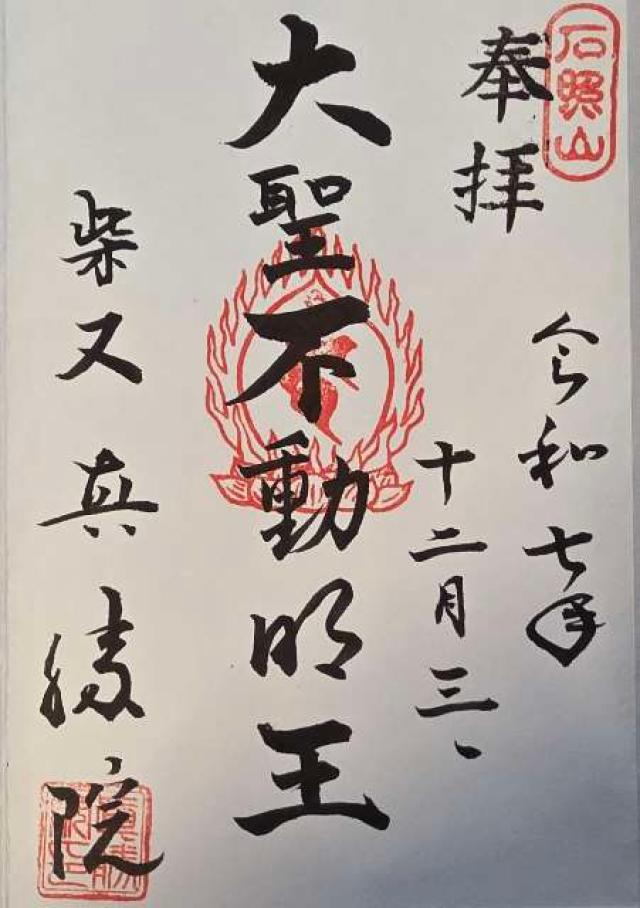 石照山
奉拝
令和七年
十二月三日
大聖不動明王
柴又真勝院